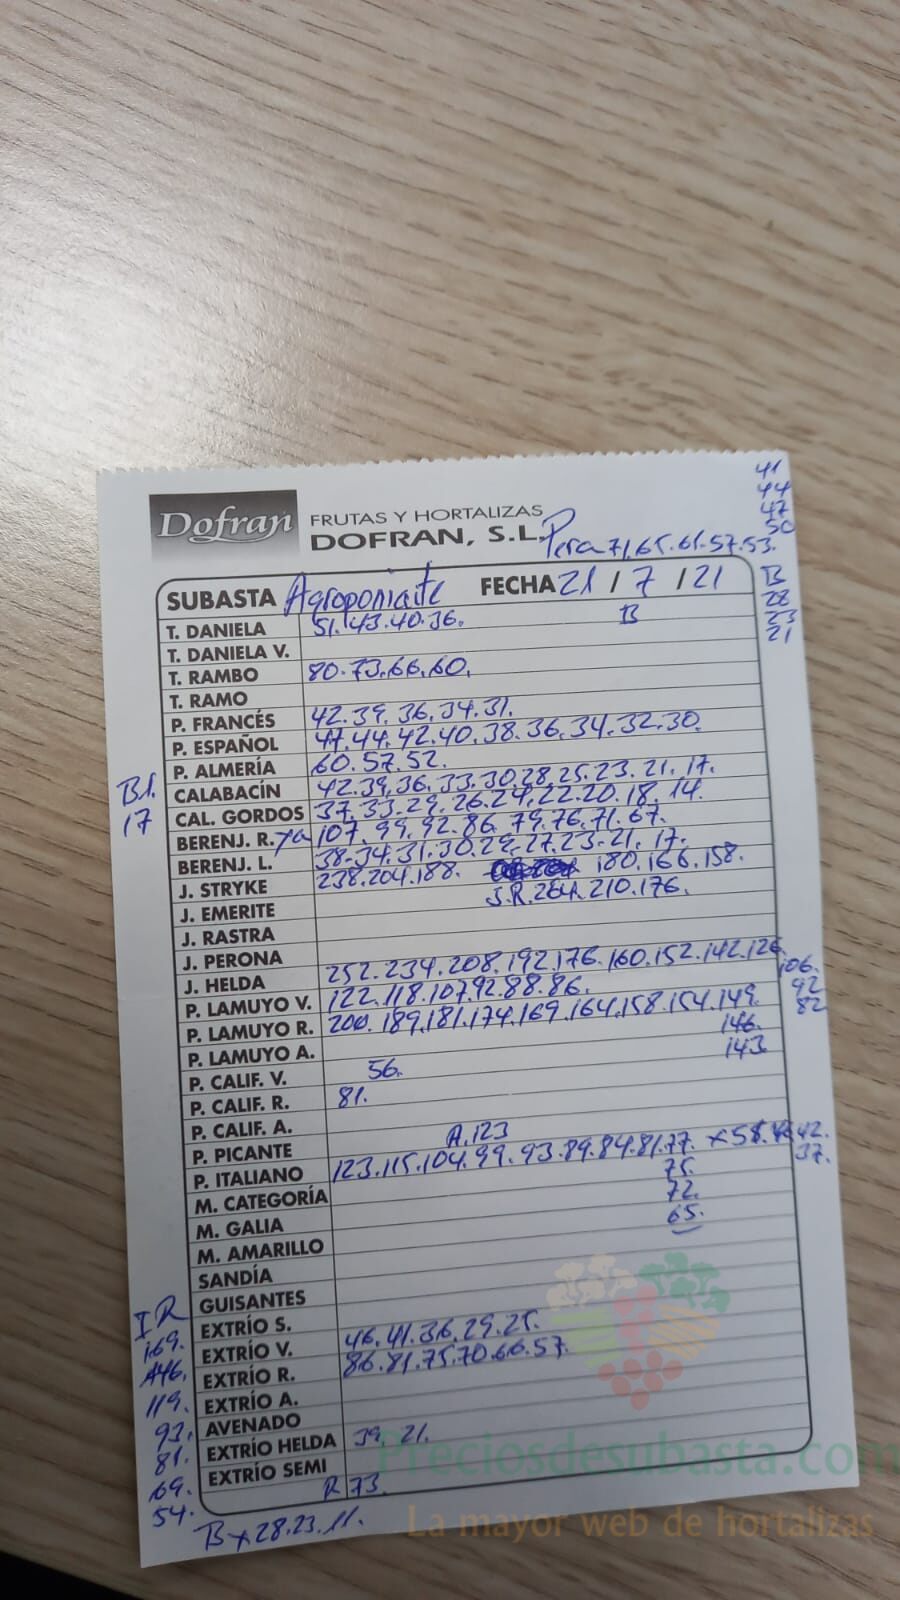 41
44
47
50
Dofran FRUTAS Y HORTALIZAS
DOFRAN, S.L. Pera 71.65.61.57.53.
SUBASTA Agroponiente FECHA 21 / 7 / 21
B
28
23
21
T. DANIELA 51.43.40.36. B
T. DANIELA V.
T. RAMBO 80.73.66.60.
T. RAMO
P. FRANCÉS 42.39.36.34.31.
P. ESPAÑOL 47.44.42.40.38.36.34.32.30.
P. ALMERÍA 60.57.52.
B1.
17
CALABACÍN 42.39.36.33.30.28.25.23.21.17.
CAL. GORDOS 37.33.29.26.24.22.20.18.14.
BERENJ. R. 107.99.92.86.79.76.71.67.
BERENJ. L. 38.34.31.30.29.27.23.21.17.
J. STRYKE 238.204.188. 180.166.158.
J. EMERITE J.R. 210.176.
J. RASTRA
J. PERONA
J. HELDA 252.234.208.192.176.160.152.142.126
106.
92
82
P. LAMUYO V. 122.118.107.92.88.86.
P. LAMUYO R. 200.189.181.174.169.164.158.154.149.
146.
143.
P. LAMUYO A.
P. CALIF. V. 56.
P. CALIF. R. 81.
P. CALIF. A.
P. PICANTE A.123
P. ITALIANO 123.115.104.99.93.89.84.81.77. 42.
37.
75.
72.
65.
M. CATEGORÍA
M. GALIA
M. AMARILLO
SANDÍA
GUISANTES
EXTRÍO S.
EXTRÍO V. 46.41.36.29.25.
EXTRÍO R. 86.81.75.70.66.57.
EXTRÍO A.
AVENADO
EXTRÍO HELDA 39.21.
EXTRÍO SEMI
R 73.
I R
169.
146.
119.
93.
81.
69.
54.
B x 28.23.11.
Preciosdesubasta.com
La mayor web de hortalizas